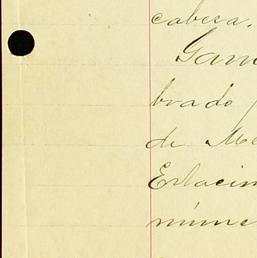 cabeza.
Gam
brado
de Me
Estacim
núme